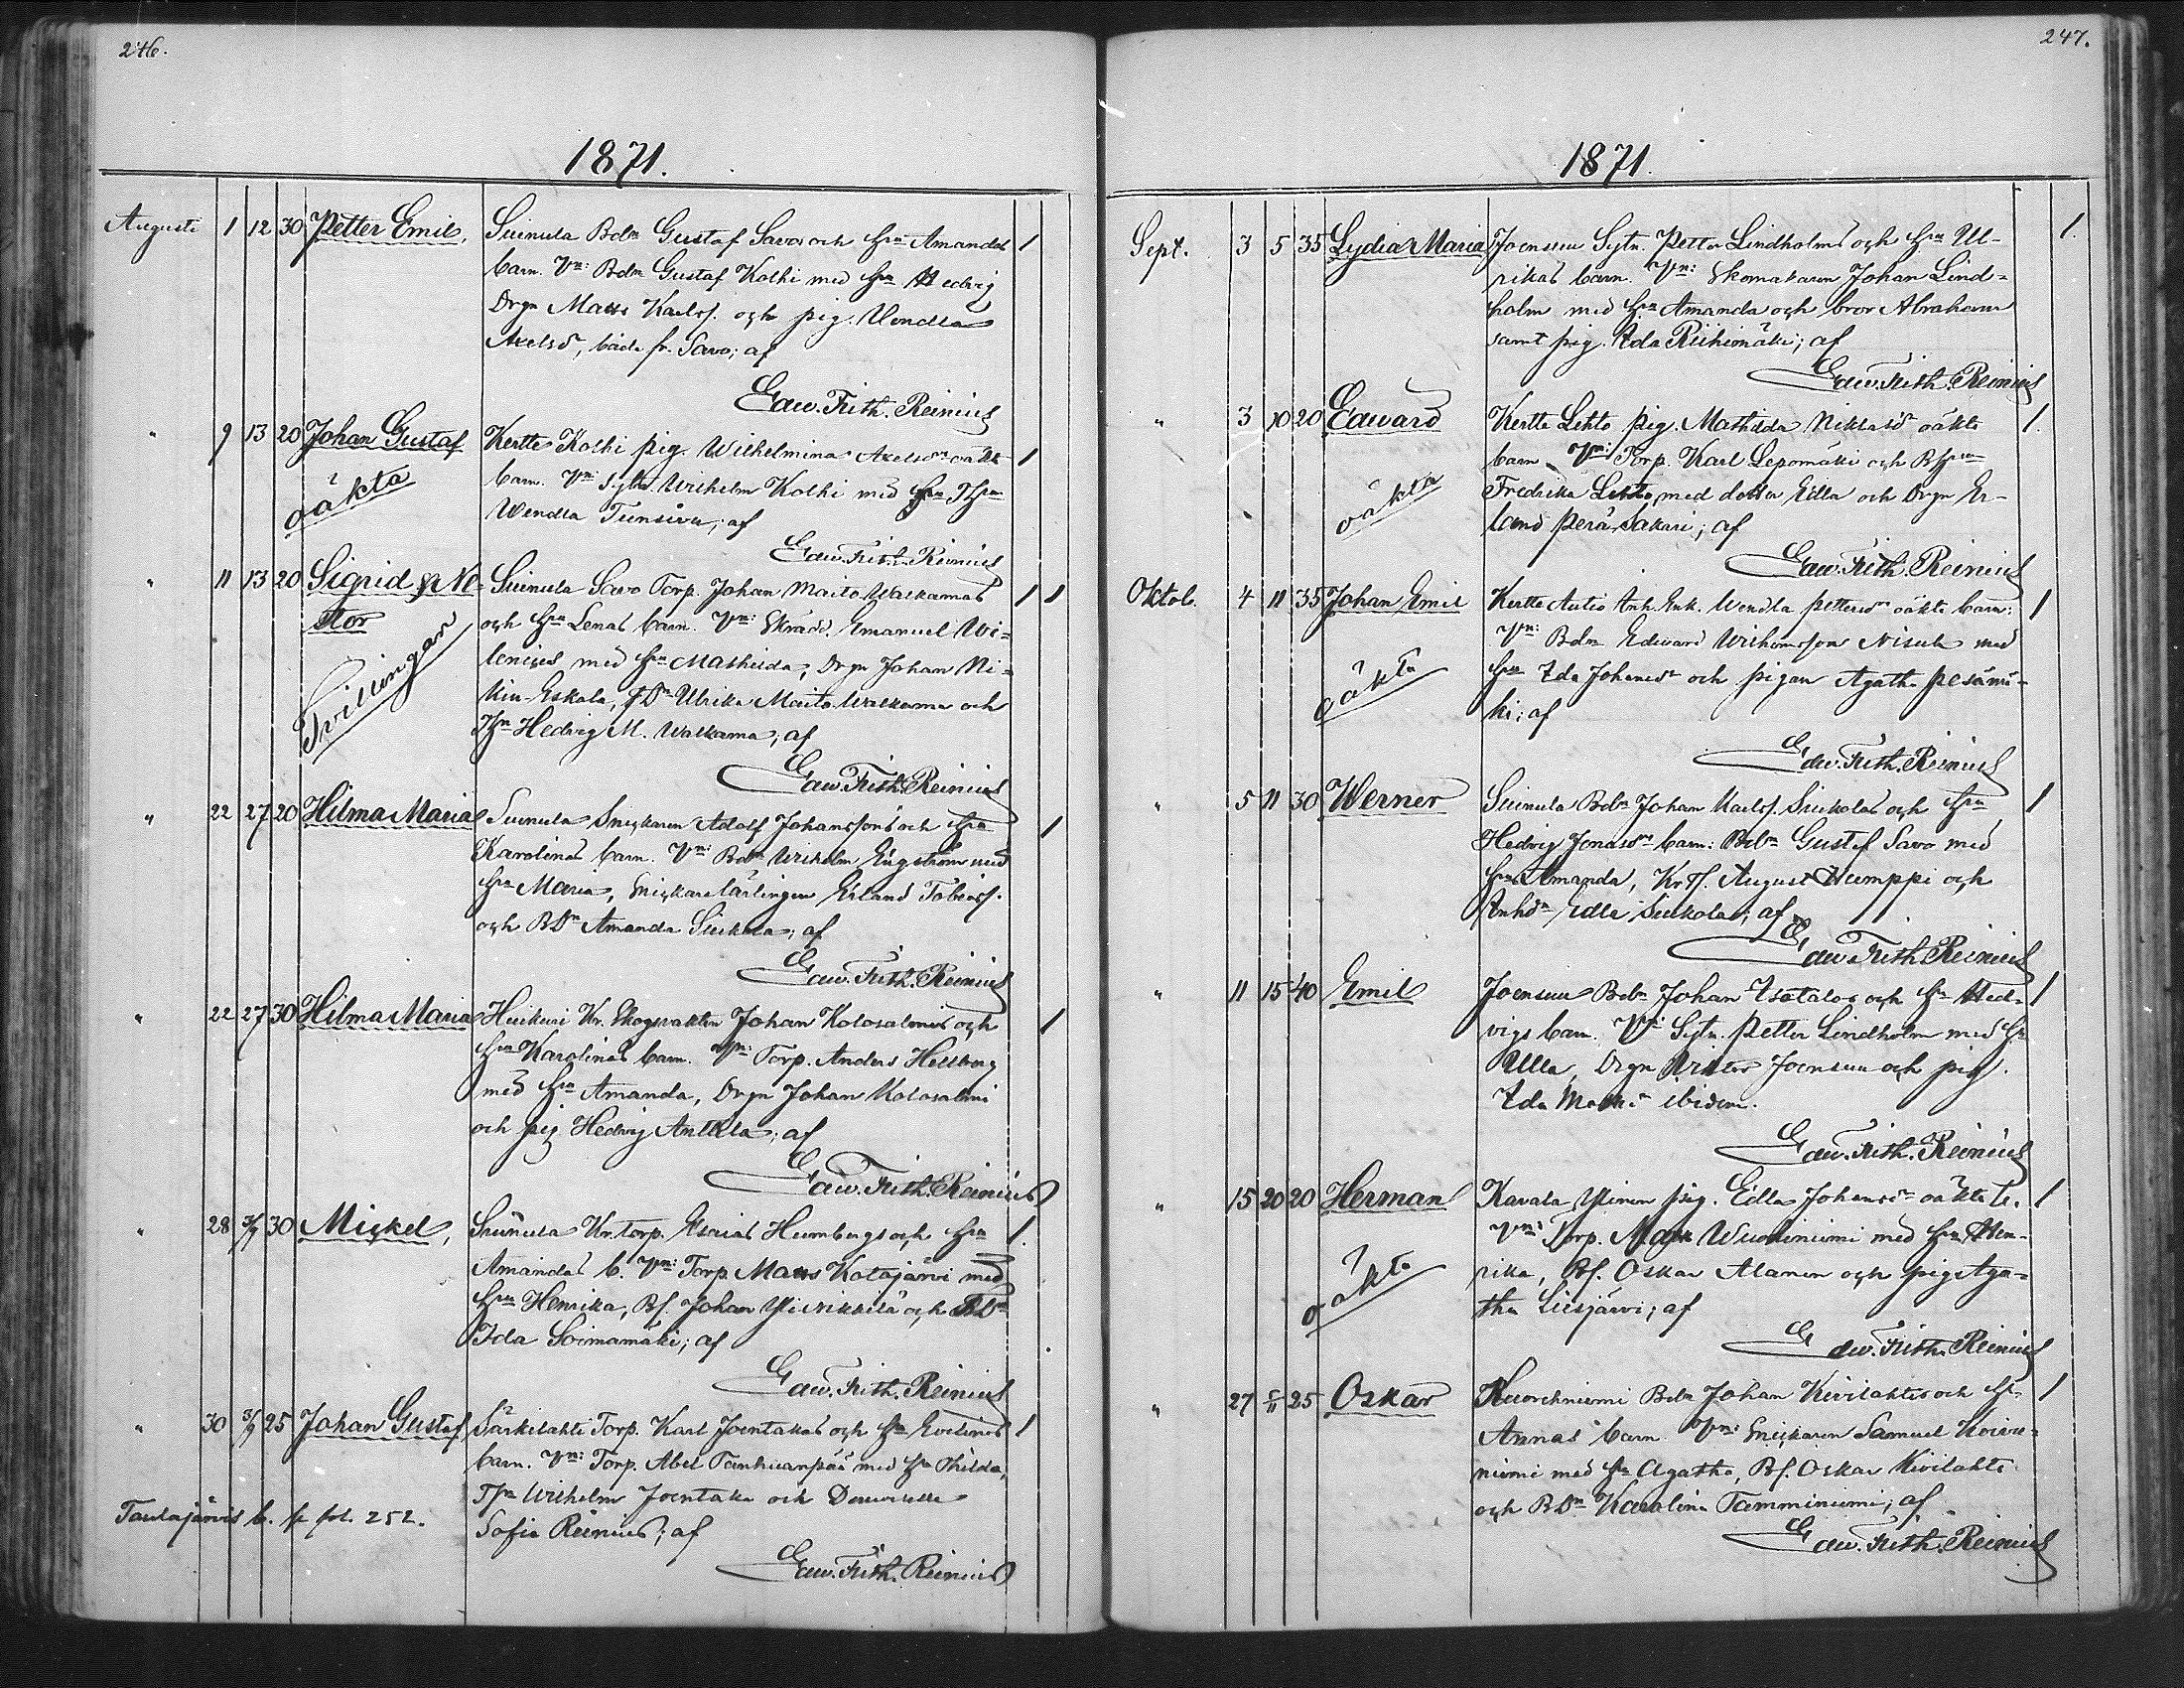 246.
1871.
Augusti 1 12 30 Petter Emil, Suinula Bdn Gustaf Savos och hru Amandas 1
barn. Vn: Bdn Gustaf Kolhi med hru Hedvig
Drgn Matts Karlss. och pig. Vendla
Axelsdr, båda fr. Savo; af
Edw. Frith. Reinius
" 9 13 20 Johan Gustaf Kertte Kolhi pig. Wilhelmina Axelsdrs oäkta 1
oäkta
barn. Vn: Wilhelm Kolhi med hru
Wendla; af
Edw. Frith. Reinius
" 11 13 20 Sigrid & Ne- Suinula Savo Torp. Johan Maito Walkamas 1 1
stor
och hru Lenas barn. Vn: Skrädd. Emanuel Wi-
lenius med hru Mathilda, Drgn Johan Ni-
Tvillingar
Eskola, Ulrika Maito Walkama och
Hedvig M. Walkama; af
Edw. Frith. Reinius
" 22 27 20 Hilma Maria Suinula Snickaren Adolf Johanssons och hru 1
Karolinas barn. Vn: Bdn Wilhelm Engström med
hru Maria, Snickarelärlingen Erland Tobiass.
och BDn Amanda Siukola; af
Edw. Frith. Reinius
" 22 27 30 Hilma Maria Huikuri Kr. Skogvakten Johan Kolosalmis och 1
hru Karolinas barn. Vn: Torp. Anders Hellberg
med hru Amanda, Drgn Johan Kolosalmi
och pig Hedvig Anttila; af
Edw. Frith. Reinius
" 28 3/9 30 Mickel, Suinula Kr. torp. Esaias Humbergs och hru 1.
Amandas b. Vn: Torp Matts Kotajärvi med
hru Henrika, Bs. Johan Yli Nikkilä och BDn
Ida Soimamäki; af
Edw. Frith. Reinius
" 30 3/9 25 Johan Gustaf Särkilahti Torp. Karl Joentakas och hru Evelinas 1
barn. Vn: Torp. Abel med hru Hilda,
Wilhelm Joentaka och Demoiselle
Tautajärvis b. se fol. 252.
Sofia Reinius; af
Edw. Frith. Reinius
247.
1871.
Sept. 3 5 35 Lydia Maria Joensuu Sytn. Petter Lindholms och hru Ul- 1.
rikas barn. Vn: Skomakaren Johan Lind-
holm med hru Amanda och bror Abraham
samt pig. Ida Riihimäki; af
Edw. Frith. Reinius
" 3 10 20 Edward Kertte Lehto pig. Mathilda Niklasd oäkta 1.
barn. Vn: Torp. Karl Lepomäki och
oäkta
Fredrika Lehto, med dotter Edla och Drgn Er-
land Perä Sakari; af
Edw. Frith. Reinius
Oktob. 4 11 35 Johan Emil Kertte Autio Inh. Enk. Wendla Pettersdrs oäkta barn: 1
Vn: Bdn Edward Wilhemsson Nisula med
oäkta
hru Ida Johansdr och pigan Agatha Pesämä-
ki; af
Edw. Frith. Reinius
" 5 11 30 Werner Suinula Bdn Johan Karlss. Siukolas och hru 1
Hedvig Jonasdrs barn: Bdn Gustaf Savo med
hru Amanda, August Humppi och
Edla Siukola; af
Edw. Frith. Reinius
" 11 15 40 Emil Joensuu Bdn Johan Isotalos och hru Hed- 1
vigs barn. Vn: Sytn. Petter Lindholm med hru
Ulla, Drgn Viktor Joensuu och pig.
Ida ibidem.
Edw. Frith. Reinius
" 15 20 20 Herman Kavala Ylinen pig. Edla Johansdrs oäkta b. 1
Vn: Torp. Matts Wuoriniemi med hru Hen-
oäkta
rika, Bs. Oskar Alanen och pig Aga-
tha Liesjärvi; af
Edw. Frith. Reinius
" 27 5/11 25 Oskar Kuorehniemi Bdn Johan Kivilahtis och hru 1
Annas barn. Vn: Snickaren Samuel Koivu-
niemi med hru Agatha, Bs. Oskar Kivilahti
och BDn Karolina Tamminiemi; af
Edw. Frith. Reinius